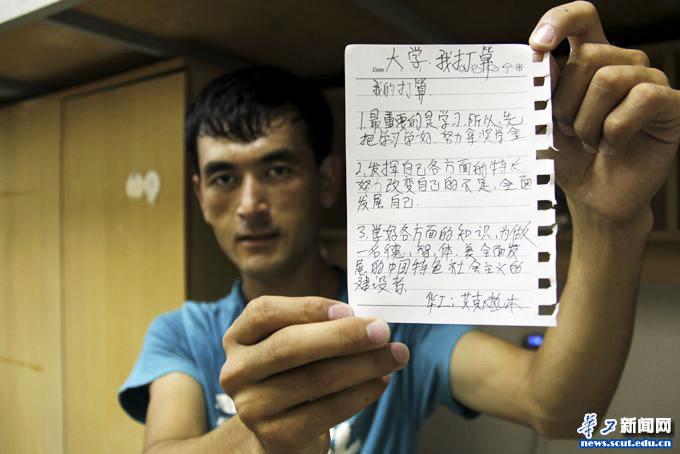 大学.我打算
Date
我的打算
1.最重要的是学习.所以.先
把学习学好.努力拿奖学金
2.发挥自己各方面的特长
努力改变自己的不足,全面
发展自己.
3.学好各方面的知识,为做
一名德、智、体、美全面发
展的中国特色社会主义的
建设者.
华工:艾克拉木
华工新闻网
www.news.scut.edu.cn